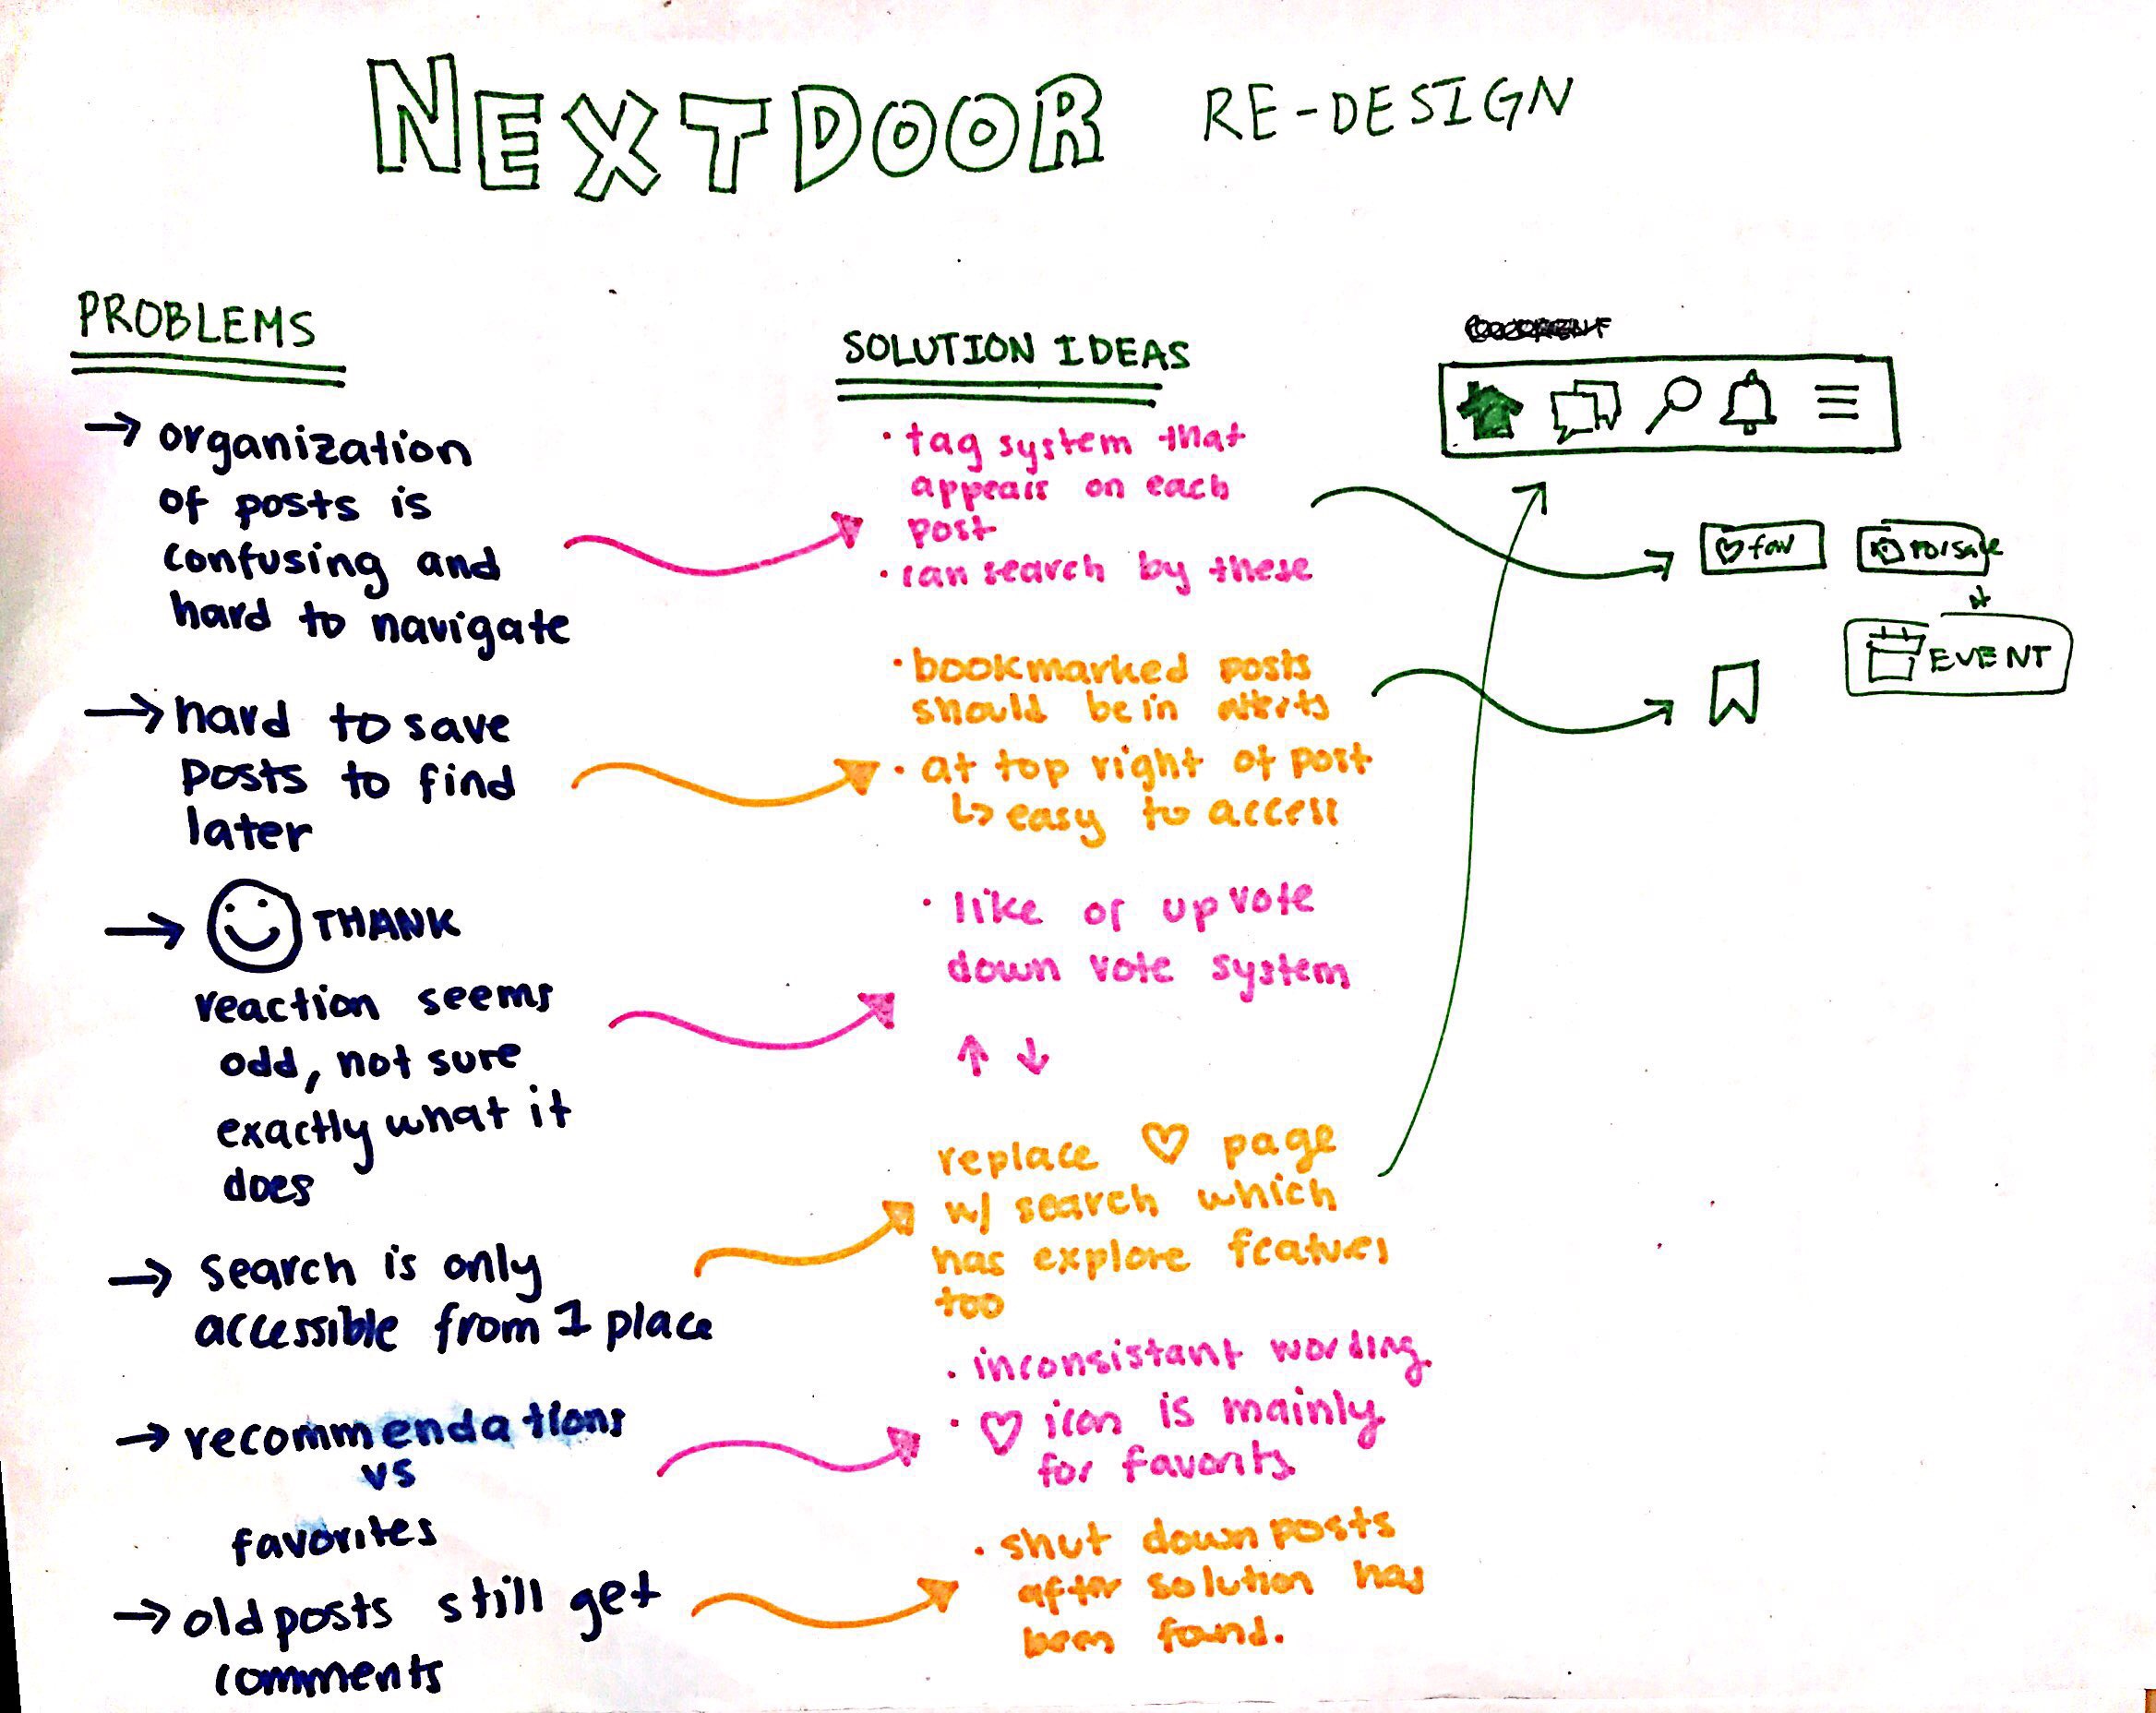 NEXTDOOR RE-DESIGN
PROBLEMS
→ organization
of posts is
confusing and
hard to navigate
→ hard to save
posts to find
later
→ THANK
reaction seems
odd, not sure
exactly what it
does
→ search is only
accessible from 1 place
→ recommendations
vs
favorites
→ old posts still get
comments
SOLUTION IDEAS
· tag system that
appears on each
post
· can search by these
· bookmarked posts
should be in alerts
· at top right of post
↳ easy to access
· like or upvote
down vote system
↑ ↓
replace ♡ page
w/ search which
has explore features
too
· inconsistant wording
· ♡ icon is mainly
for favorits
· shut down posts
after solution has
been found.
♡ fav
for sale
EVENT